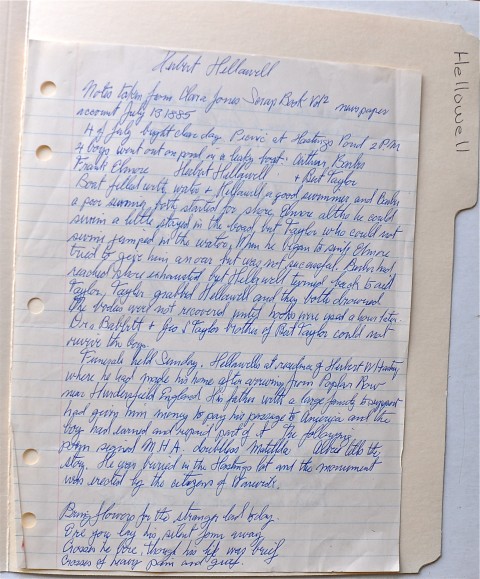 Herbert Hellawell
Notes taken from Clara Jones Scrap Book Vol 2 newspaper
account July 13 1885
4 of July bright clear day. Picnic at Hastings Pond 2 P.M
4 boys went out on pond in a leaky boat. Arthur Banks
Frank Elmore Herbert Hellawell + Bert Taylor
Boat filled with water + Hellawell a good swimmer and Banks
a poor swimmer both started for shore. Elmore altho he could
swim a little stayed in the boat, but Taylor who could not
swim jumped in the water. When he began to sink Elmore
tried to give him an oar but was not successful. Banks had
reached shore exhausted but Hellawell turned back to aid
Taylor. Taylor grabbed Hellawell and they both drowned
The bodies were not recovered until hooks were used a hour later.
Drs Babbitt + Geo S Taylor brother of Bert Taylor could not
revive the boys.
Funerals held Sunday. Hellawells at residence of Herbert W Hastings
where he had made his home after arriving from Poplar Row
near Huddersfield England. His father with a large family to support
had given him money to pay his passage to America and the
boy had earned and repaid part of it. The following
poem signed M.H.A. doubtless Matilda tells the
story. He was buried in the Hastings lot and the monument
was erected by the citizens of Warwick.
Bring flowers for the stranger lad today
Ere you lay his silent form away
Crosses he bore, though his life was brief
Crosses of heavy pain and grief.
Hellowell